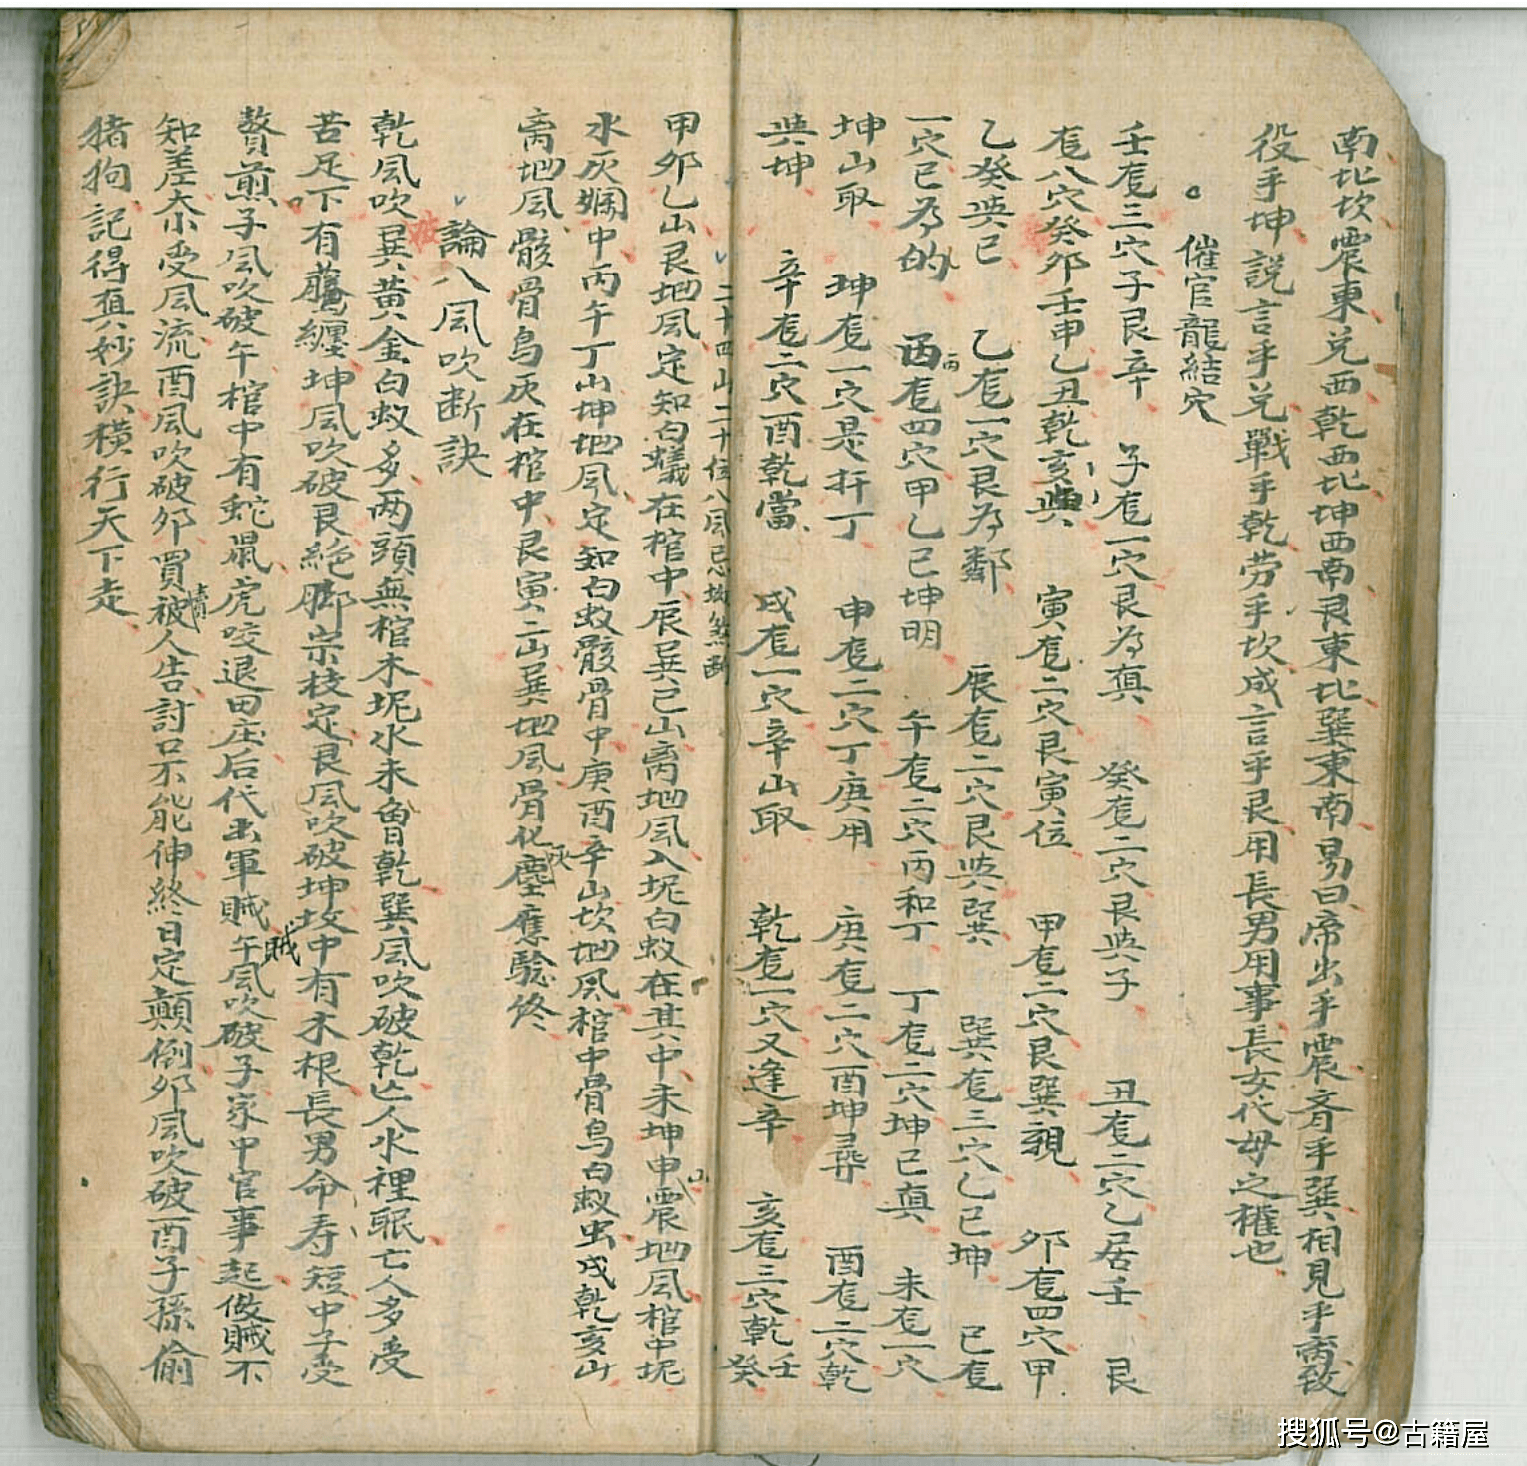 南北坎震東兑西乾西北坤西南艮東北巽東南易曰帝出乎震齊乎巽相見乎离致
役乎坤説言乎兑戰乎乾劳乎坎成言乎艮用長男用事長女代母之權也
催官龍結穴
壬龍三穴子艮辛 子龍一穴艮为真 癸龍二穴艮與子 丑龍二穴乙居壬 艮
龍八穴癸卯壬申乙丑乾亥與 寅龍二穴艮寅位 甲龍二穴艮巽親 卯龍四穴甲
乙癸與巳 乙龍一穴艮为鄰 辰龍二穴艮與巽 巽龍三穴乙巳坤 巳龍
一穴巳为的 丙龍四穴甲乙巳坤明 午龍二穴丙和丁 丁龍二穴坤巳真 未龍一穴
坤山取 坤龍一穴是扦丁 申龍二穴丁庚用 庚龍二穴酉坤尋 酉龍二穴乾
與坤 辛龍二穴酉乾當 戌龍一穴辛山取 乾龍一穴又逢辛 亥龍三穴乾壬癸
二十四山二十位八風忌坟煞断
甲卯乙山艮地風定知白蟻在棺中辰巽巳山离地风入坭白蚁在其中未坤申山震地风棺中坭
水灰爛中丙午丁山坤地风定知白蚁骸骨中庚酉辛山坎地风棺中骨烏白蚁虫戌乾亥山
离地风骸骨烏灰在棺中艮寅二山巽地风骨化塵灰應驗终
論八风吹断訣
乾风吹巽黄金白蚁多两頭無棺木坭水未曾乾巽风吹破乾亡人水裡眠亡人多受
苦足下有藤纏坤风吹破艮絶脚宗枝定艮风吹破坤坟中有木根長男命寿短中子受
熬煎子风吹破午棺中有蛇鼠虎咬退田庄后代出軍賊午风吹破子家中官事起做賊不
知差大小受风流酉风吹破卯買賣被人告討口不能伸終日定顛倒卯风吹破酉子孫偷
猪狗記得真妙訣横行天下走
搜狐号@古籍屋